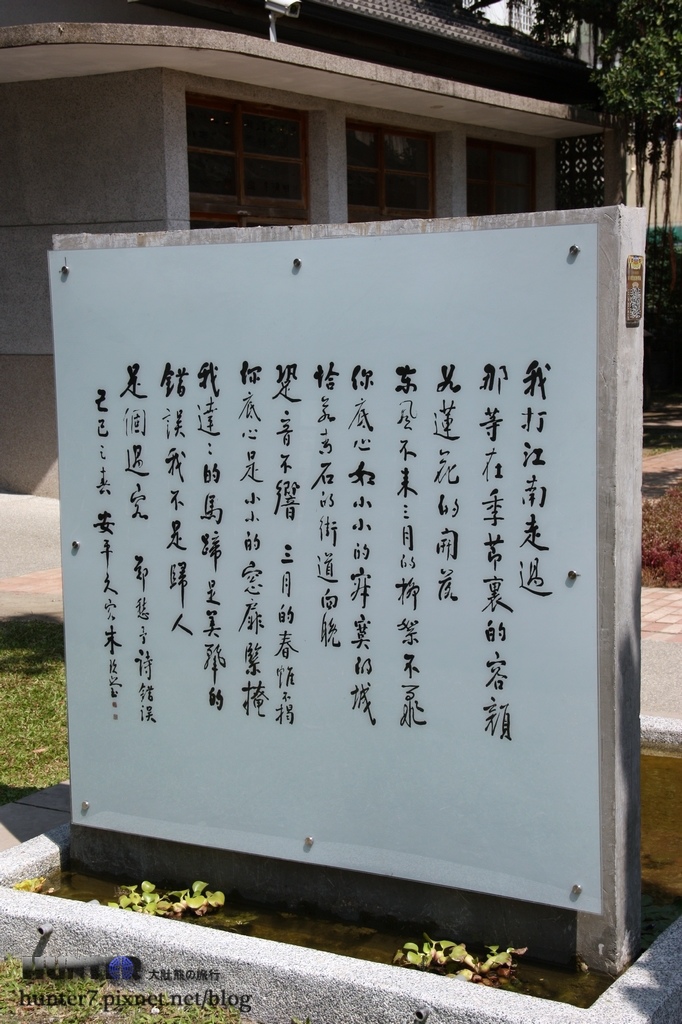 我打江南走過
那等在季節裏的容顏
如蓮花的開落
東風不來三月的柳絮不飛
你底心如小小的寂寞的城
恰若青石的街道向晚
跫音不響 三月的春帷不揭
你底心是小小的窓扉緊掩
我達達的馬蹄是美麗的
錯誤我不是歸人
是個過客 鄭愁予詩錯誤
己巳之春 安平久穴朱
HUNTER 大肚熊の旅行
hunter7.pixnet.net/blog